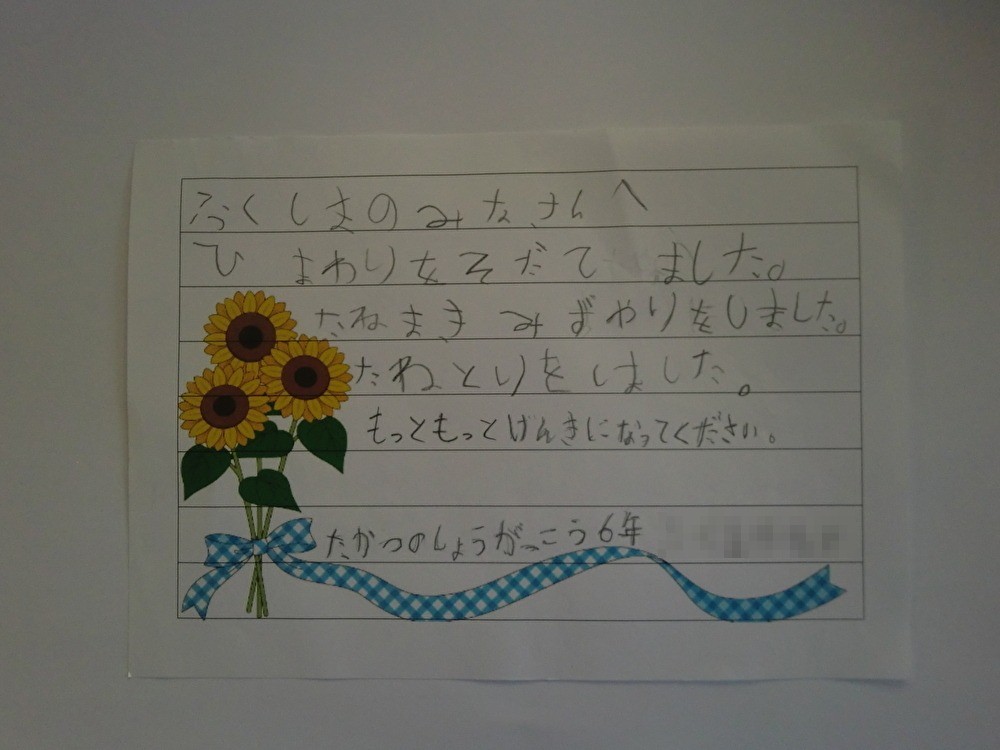 ふくしまのみなさんへ
ひまわりをそだてました。
たねまきみずやりをしました。
たねとりをしました。
もっともっとげんきになってください。
たかつのしょうがっこう6年